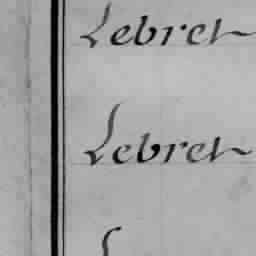 Lebret
Lebret